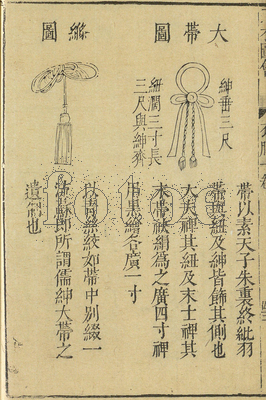 大帶圖
紳垂三尺
紐濶三寸長
三尺與紳齊
帶以素天子朱裏終紕羽
紐及紳皆飾其側也
大夫裨其紐及末士裨其
末帶絹為之廣四寸裨
用黑繒各廣一寸
絛圖
以絲絞如帶中別綴一
即所謂儒紳大帶之
遺也
fotoe